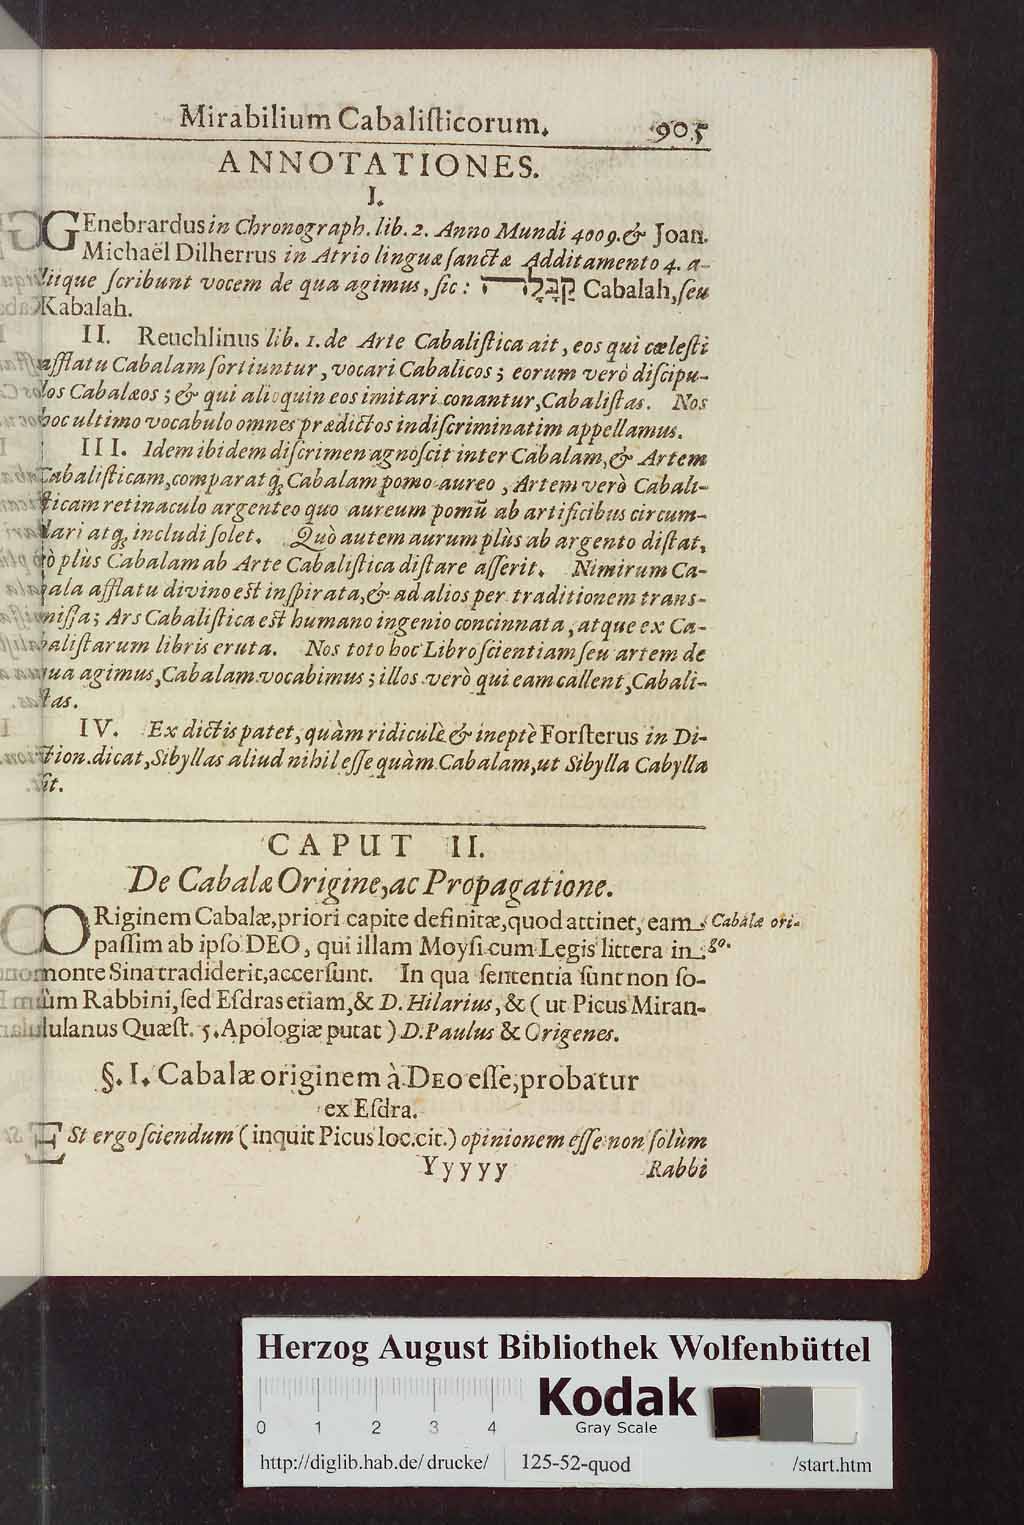 Mirabilium Cabaliſticorum. 905
ANNOTATIONES.
I.
GEnebrardus in Chronograph. lib. 2. Anno Mundi 4009. & Joan.
Michaël Dilherrus in Atrio linguæ ſanctæ Additamento 4. a-
liique ſcribunt vocem de qua agimus, ſic: קַבָּלָה Cabalah, ſeu
Kabalah.
II. Reuchlinus lib. 1. de Arte Cabaliſtica ait, eos qui cœleſti
afflatu Cabalam ſortiuntur, vocari Cabalicos; eorum verò diſcipu-
los Cabalæos; & qui alioquin eos imitari conantur, Cabaliſtas. Nos
hoc ultimo vocabulo omnes prædictos indiſcriminatim appellamus.
III. Idem ibidem diſcrimen agnoſcit inter Cabalam, & Artem
Cabaliſticam, comparatq; Cabalam pomo aureo, Artem verò Cabali-
ſticam retinaculo argenteo quo aureum pomũ ab artificibus circum-
dari atq; includi ſolet. Quò autem aurum plùs ab argento diſtat,
eò plùs Cabalam ab Arte Cabaliſtica diſtare aſſerit. Nimirum Ca-
bala afflatu divino eſt inſpirata, & ad alios per traditionem trans-
miſſa; Ars Cabaliſtica eſt humano ingenio concinnata, atque ex Ca-
baliſtarum libris eruta. Nos toto hoc Libro ſcientiam ſeu artem de
qua agimus, Cabalam vocabimus; illos verò qui eam callent, Cabali-
ſtas.
IV. Ex dictis patet, quàm ridiculè & ineptè Forſterus in Di-
ction. dicat, Sibyllas aliud nihil eſſe quàm Cabalam, ut Sibylla Cabylla
ſit.
CAPUT II.
De Cabalæ Origine, ac Propagatione.
ORiginem Cabalæ, priori capite definitæ, quod attinet, eam Cabalæ ori-
paſſim ab ipſo DEO, qui illam Moyſi cum Legis littera in go.
monte Sina tradiderit, accerſunt. In qua ſententia ſunt non ſo-
lùm Rabbini, ſed Eſdras etiam, & D. Hilarius, & (ut Picus Miran-
dulanus Quæſt. 5. Apologiæ putat) D. Paulus & Origenes.
§. I. Cabalæ originem à DEO eſſe, probatur
ex Eſdra.
ESt ergo ſciendum (inquit Picus loc. cit.) opinionem eſſe non ſolùm
Yyyyy Rabbi
Herzog August Bibliothek Wolfenbüttel
0 1 2 3 4
Kodak
Gray Scale
http://diglib.hab.de/drucke/ 125-52-quod /start.htm